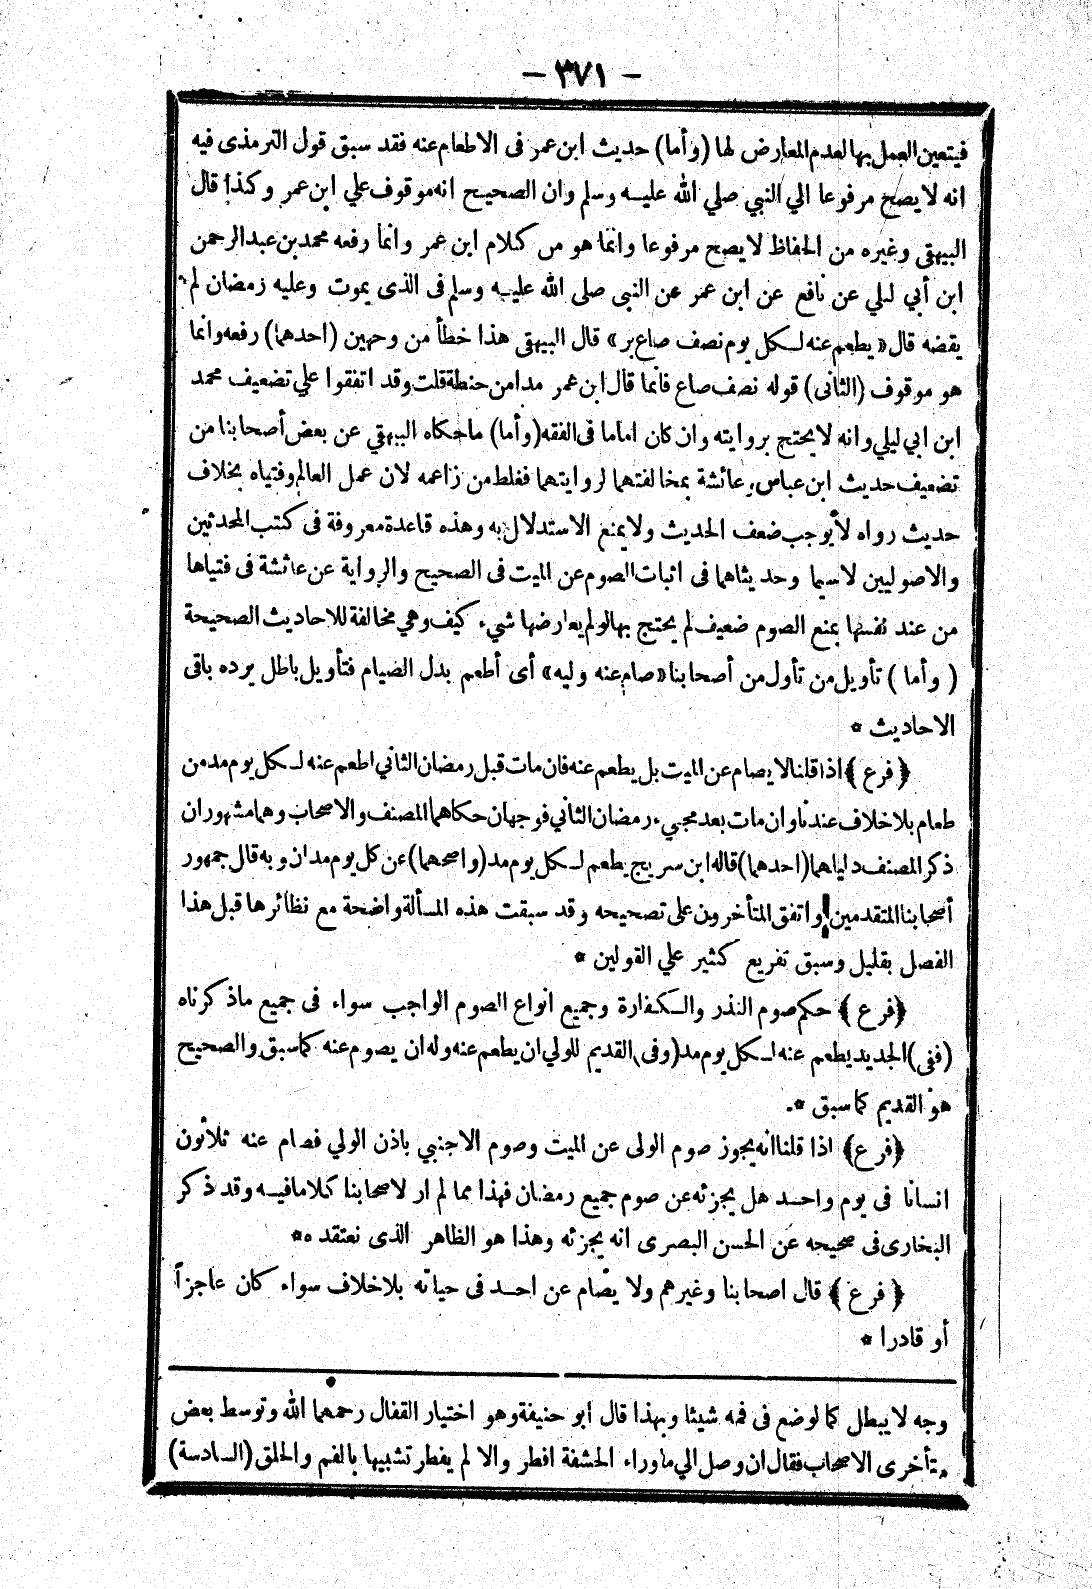 — ٣٧١ —
فيتعين العمل بها لعدم المعارض لها (وأما) حديث ابن عمر فى الاطعام عنه فقد سبق قول الترمذى فيه
انه لا يصح مرفوعا الي النبي صلي الله عليه وسلم وان الصحيح انه موقوف علي ابن عمر وكذا قال
البيهقى وغيره من الحفاظ لا يصح مرفوعا وانما هو من كلام ابن عمر وانما رفعه محمد بن عبد الرحمن
ابن أبي ليلي عن نافع عن ابن عمر عن النبى صلى الله عليه وسلم فى الذى يموت وعليه رمضان لم
يقضه قال « يطعم عنه لكل يوم نصف صاع بر » قال البيهقى هذا خطأ من وجهين (احدهما) رفعه وانما
هو موقوف (الثانى) قوله نصف صاع فانما قال ابن عمر مدا من حنطة قلت وقد اتفقوا علي تضعيف محمد
ابن ابي ليلي وانه لا يحتج بروايته وان كان اماما فى الفقه (وأما) ماحكاه البيهقي عن بعض أصحابنا من
تضعيف حديث ابن عباس وعائشة بمخالفتهما لروايتهما فغلط من زاعمه لان عمل العالم وفتياه بخلاف
حديث رواه لا يوجب ضعف الحديث ولا يمنع الاستدلال به وهذه قاعدة معروفة فى كتب المحدثين
والاصوليين لاسيما وحديثاهما فى اثبات الصوم عن الميت فى الصحيح والرواية عن عائشة فى فتياها
من عند نفسها بمنع الصوم ضعيف لم يحتج بها لو لم يعارضها شيء كيف وهي مخالفة للاحاديث الصحيحة
( وأما ) تأويل من تأول من أصحابنا « صام عنه وليه » أى أطعم بدل الصيام فتأويل باطل يرده باقى
الاحاديث *
﴿ فرع ﴾ اذا قلنا لا يصام عن الميت بل يطعم عنه فان مات قبل رمضان الثاني اطعم عنه لكل يوم مد من
طعام بلا خلاف عندنا وان مات بعد مجيء رمضان الثاني فوجهان حكاهما المصنف والاصحاب وهما مشهوران
ذكر المصنف دليلهما (احدهما) قاله ابن سريج يطعم لكل يوم مد (واصحهما) عن كل يوم مدان وبه قال جمهور
أصحابنا المتقدمين واتفق المتأخرون على تصحيحه وقد سبقت هذه المسألة واضحة مع نظائرها قبل هذا
الفصل بقليل وسبق تفريع كثير علي القولين *
﴿ فرع ﴾ حكم صوم النذر والكفارة وجميع انواع الصوم الواجب سواء فى جميع ماذكرناه
(ففى) الجديد يطعم عنه لكل يوم مد (وفى) القديم للولي ان يطعم عنه وله ان يصوم عنه كما سبق والصحيح
هو القديم كما سبق *
﴿ فرع ﴾ اذا قلنا انه يجوز صوم الولى عن الميت وصوم الاجنبي باذن الولي فصام عنه ثلاثون
انسانا فى يوم واحد هل يجزئه عن صوم جميع رمضان فهذا مما لم ار لاصحابنا كلاما فيه وقد ذكر
البخارى فى صحيحه عن الحسن البصرى انه يجزئه وهذا هو الظاهر الذى نعتقده *
﴿ فرع ﴾ قال اصحابنا وغيرهم ولا يصام عن احد فى حياته بلا خلاف سواء كان عاجزاً
أو قادرا *
وجه لا يبطل كما لو ضع فى فمه شيئا وبهذا قال ابو حنيفة وهو اختيار القفال رحمهما الله وتوسط بعض
متأخرى الاصحاب فقال ان وصل الي ماوراء الحشفة افطر والا لم يفطر تشبيها بالفم والحلق (السادسة)